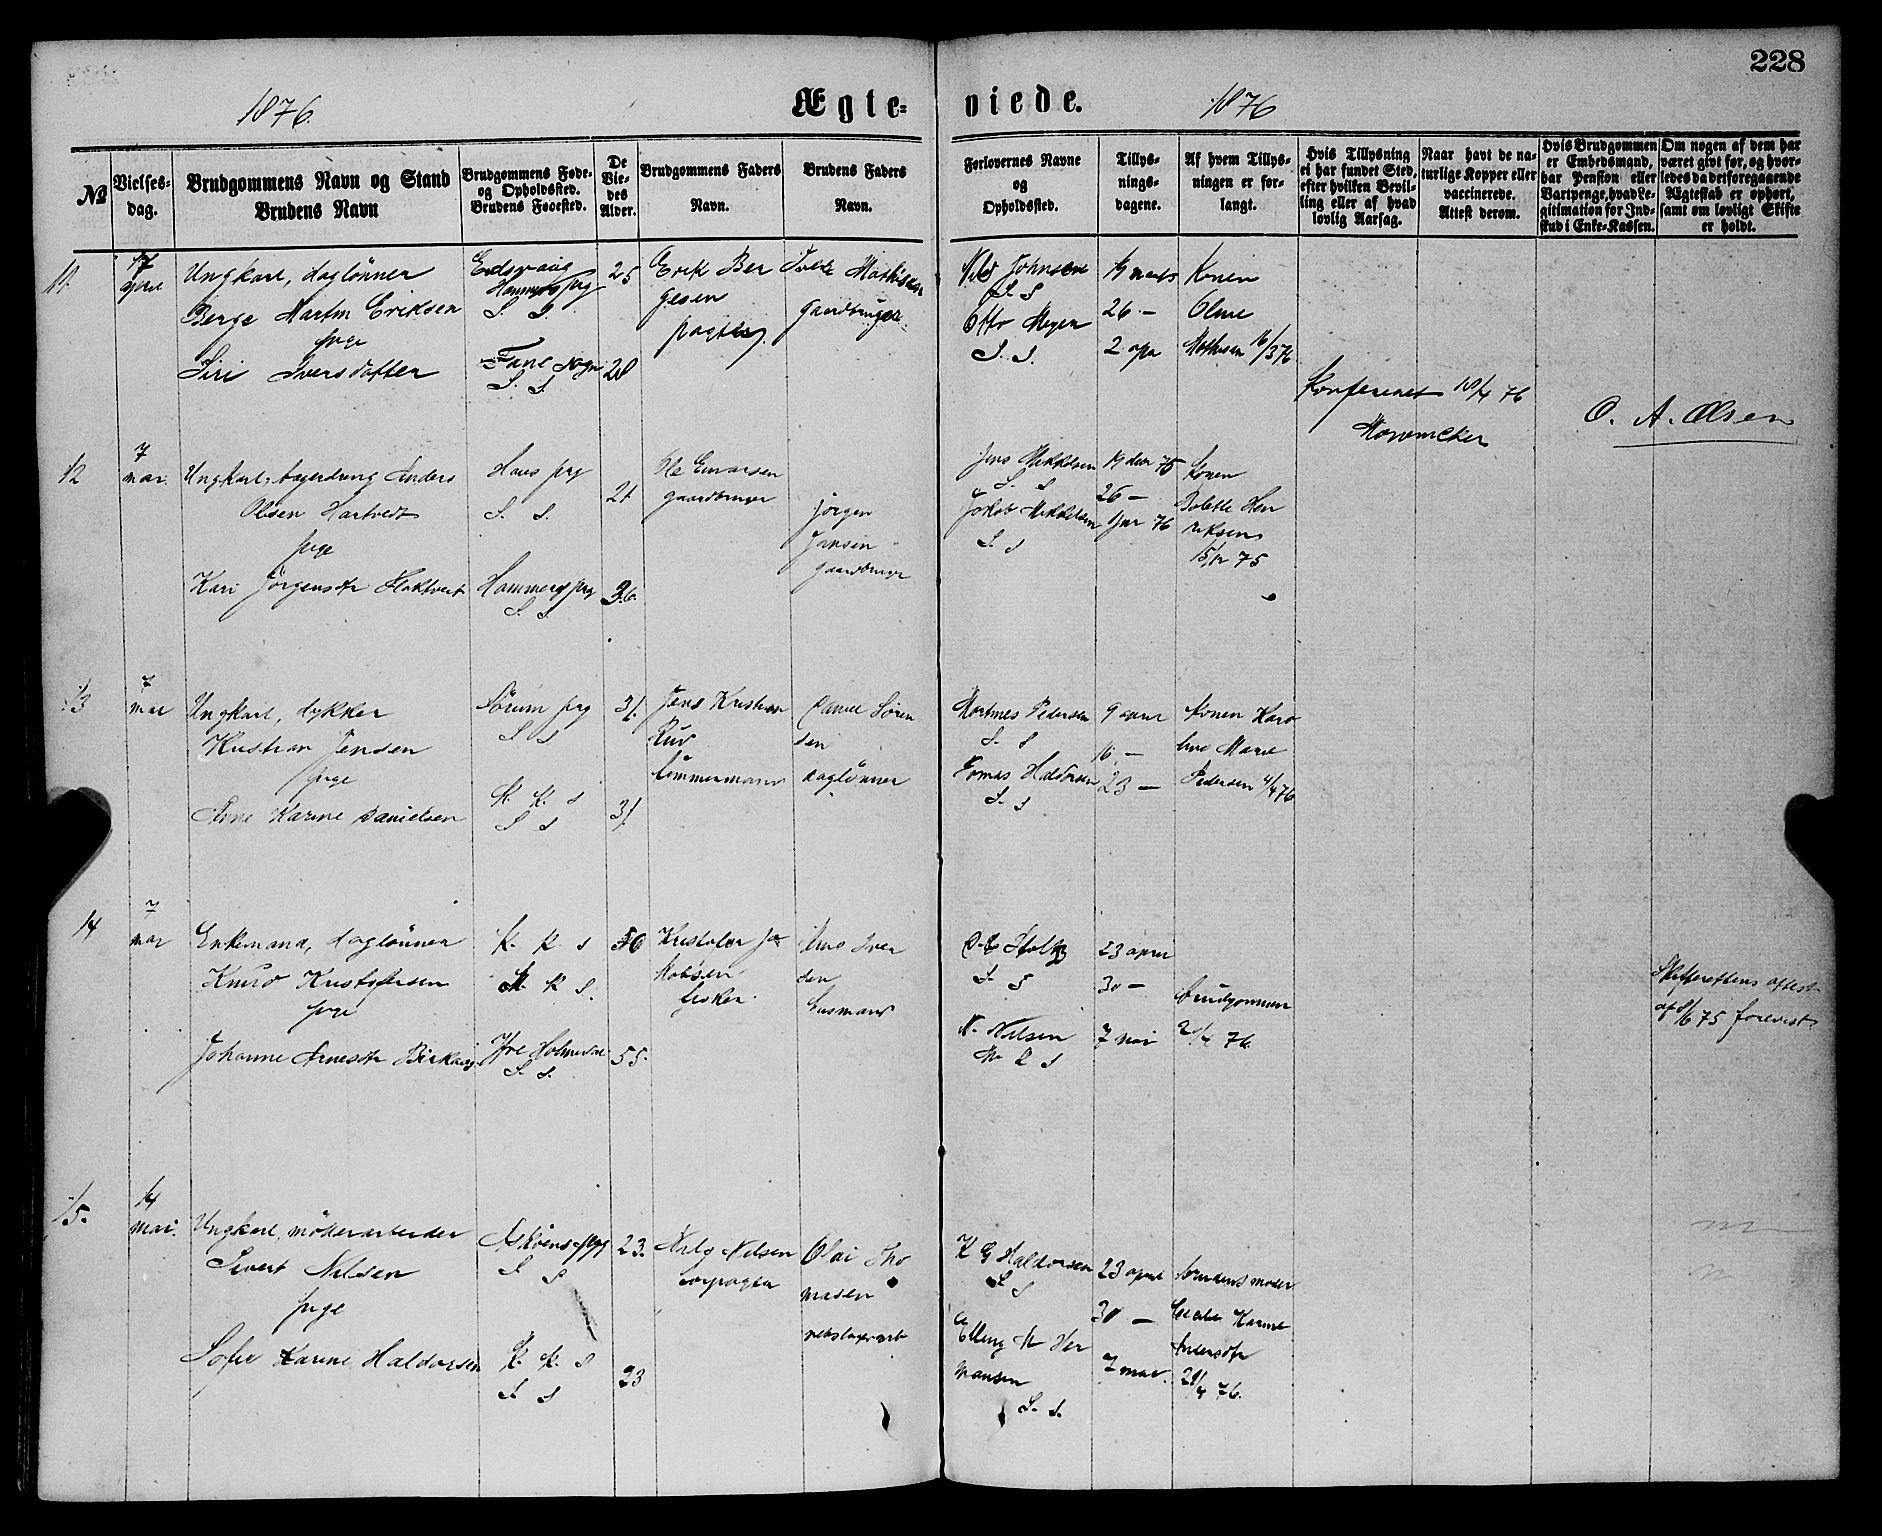 228
1876.
Ægte-
viede.
1876
№
Vielses-
dag.
Brudgommens Navn og Stand
Brudens Navn
Brudgommens Føde-
og Opholdssted.
Brudens Føoested.
De
Vie-
des
Alder.
Brudgommens Faders
Navn.
Brudens Faders
Navn.
Forlovernes Navne
og
Opholdssted.
Tillys-
nings-
dagene.
Af hvem Tillys-
ningen er for-
langt.
Hvis Tillysning
ei har fundet Sted,
efter hvilken Bevil-
ling eller af hvad
lovlig Aarsag.
Naar havt de na-
turlige Kopper eller
vaccinerede.
Attest derom.
Hvis Brudgommen
er Embedsmand,
har Pension eller
Vartpenge, hvad Le-
gitimation for Ind-
skud i Enke-Kassen.
Om nogen af dem har
været givt før, og hvor-
ledes da det foregaaende
Ægteskab er ophørt,
samt om lovligt Skifte
er holdt.
11.
17
april
Ungkarl, daglønner
Berge Martin Eriksen
pige
Siri Iversdatter
Eidsvaag
Hammers prg
S. S.
Fane sogn
S. S.
25
Erik Ber
gesen
pagter
Mathisen
gaardbruger
Johnsen
S. S
Otto Meyer
S. S.
19 mars
26 —
2 apr
Konen
Oline
Mathisen 16/3 76
Konfereret 18/4 76
O. A. Olsen
12
7
mai.
Ungkarl, Anders
Olsen Hartvedt
pige
Kari Jørgensdtr
Haus prg
S. S.
Hammers prg
S. S.
21
36.
Ole Einarsen
gaardbruger
Jørgen
Jansen
gaardbruger
Jens Mikkelsen
S. S
Jakob Mikkelsen
S. S
19 dec 75
26 —
1 jan 76
Konen
Bolette Hen
riksen
15/12 75
13
7
mai
Ungkarl, dykker
Kristian Jensen
pige
Ane Karine Danielsen
Sørum prg
S S
K. K. S
S S
31.
31.
Jens Kristian
Rud
tømmermand
Daniel Søren
sen
daglønner
Martines Pedersen
S. S
Tomas Haldorsen
S. S
9 april
16 —
23 —
Konen Karo
line Marie
Pedersen 4/4 76
14
7
mai
Enkemand, daglønner
Knud Kristofersen
pige
Johanne Arnesdtr
K. K S
K S.
Ytre Holmedal
S. S.
56
55.
Kristofer Ja
kobsen
fisker.
Arne Iver
sen
husmand
Stoltz
S. S
N. Nilsen
S
23 april
30 —
7 mai
brudgommen
/4 76.
Skifterettens attest
af /6 75 forevist
15.
14
mai.
Ungkarl, møllerarbeider
Sivert Nilsen
pige
Sofie Karine Haldorsen
Askøens prg
S S
K. K. S
S. S
23.
23
Nils Nilsen
Olai Tho
masen
rebslagerarb
K G Haldorsen
S S
Elling M Her
mansen
S. S.
23 april
30 —
7 mai.
brudens moder
Karine
Andersdtr
21/4 76.